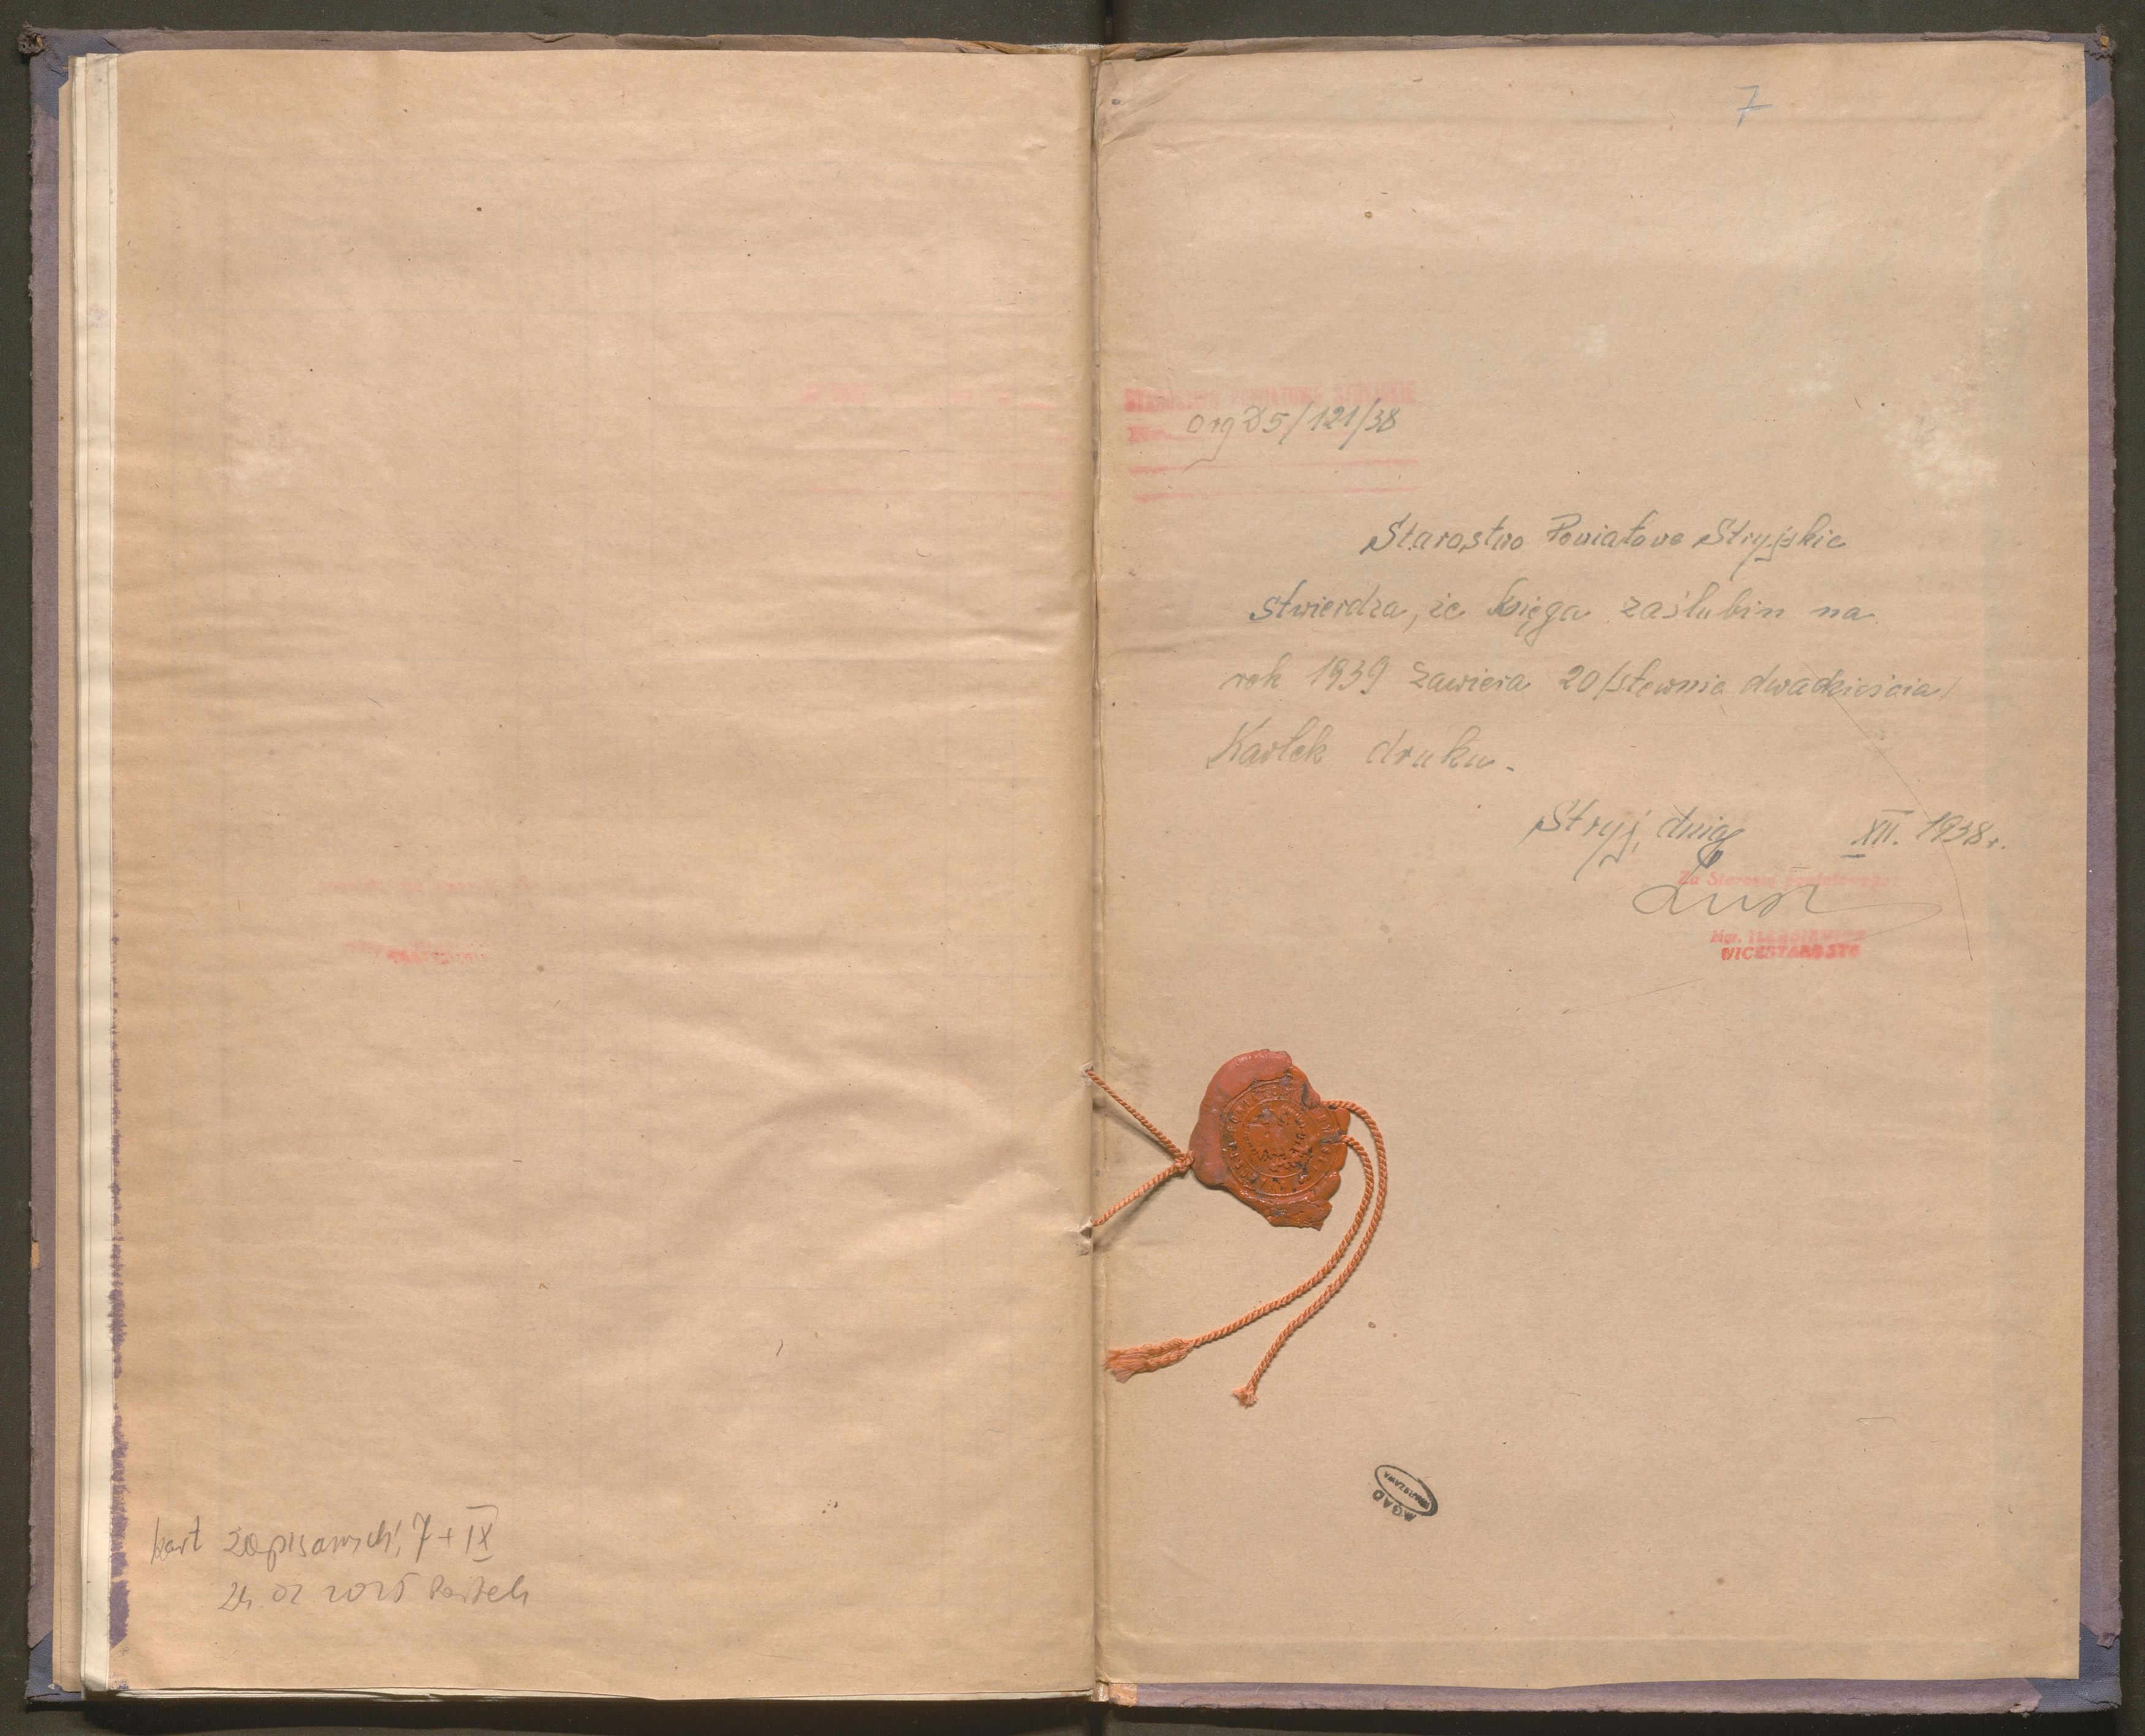 kart zapisanych: 7 + IX
02 2025
7
STAROSTWO POWIATOWE STRYJSKIE
Nr. Org 25/121/38
Starostwo Powiatowe Stryjskie
stwierdza, że księga zaślubin na
rok 1939 zawiera 20 /słownie dwadzieścia/
Kartek druku.-
Stryj, dnia XII. 1938 r.
Za Starostę Powiatowego:
Mgr.
WICESTAROSTA
AGAD
WARSZAWA